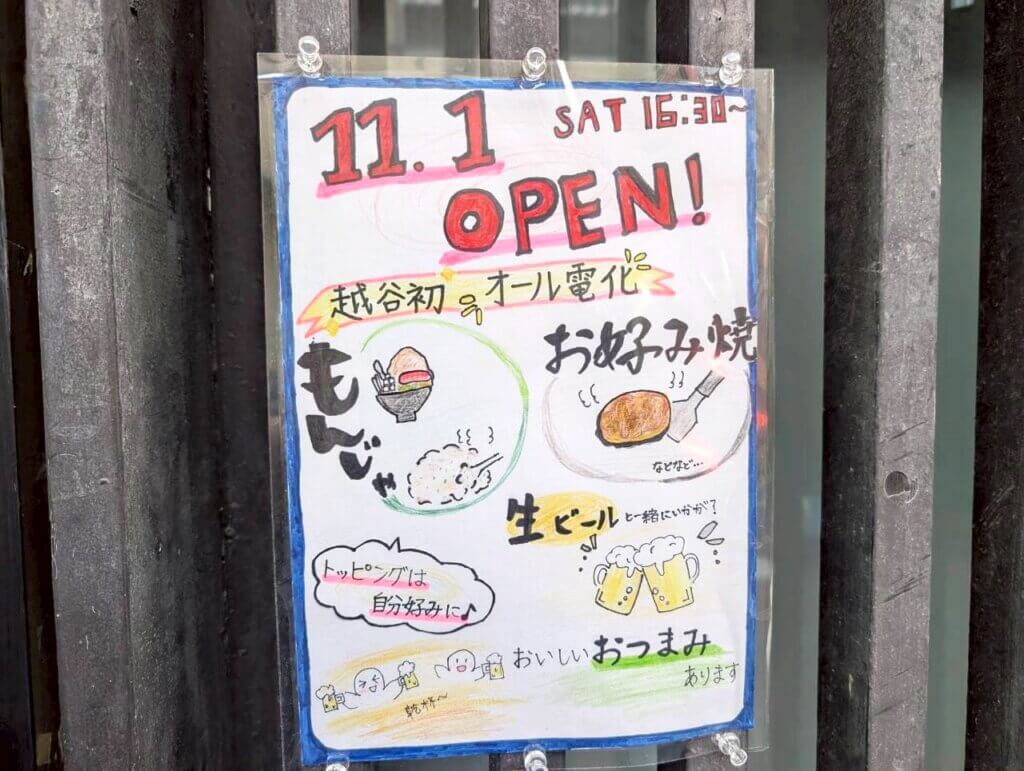 11.1 SAT 16:30~
OPEN!
越谷初 オール電化
もんじゃ
お好み焼
などなど…
生ビールと一緒にいかが？
トッピングは
自分好みに♪
おいしいおつまみ
あります
乾杯～